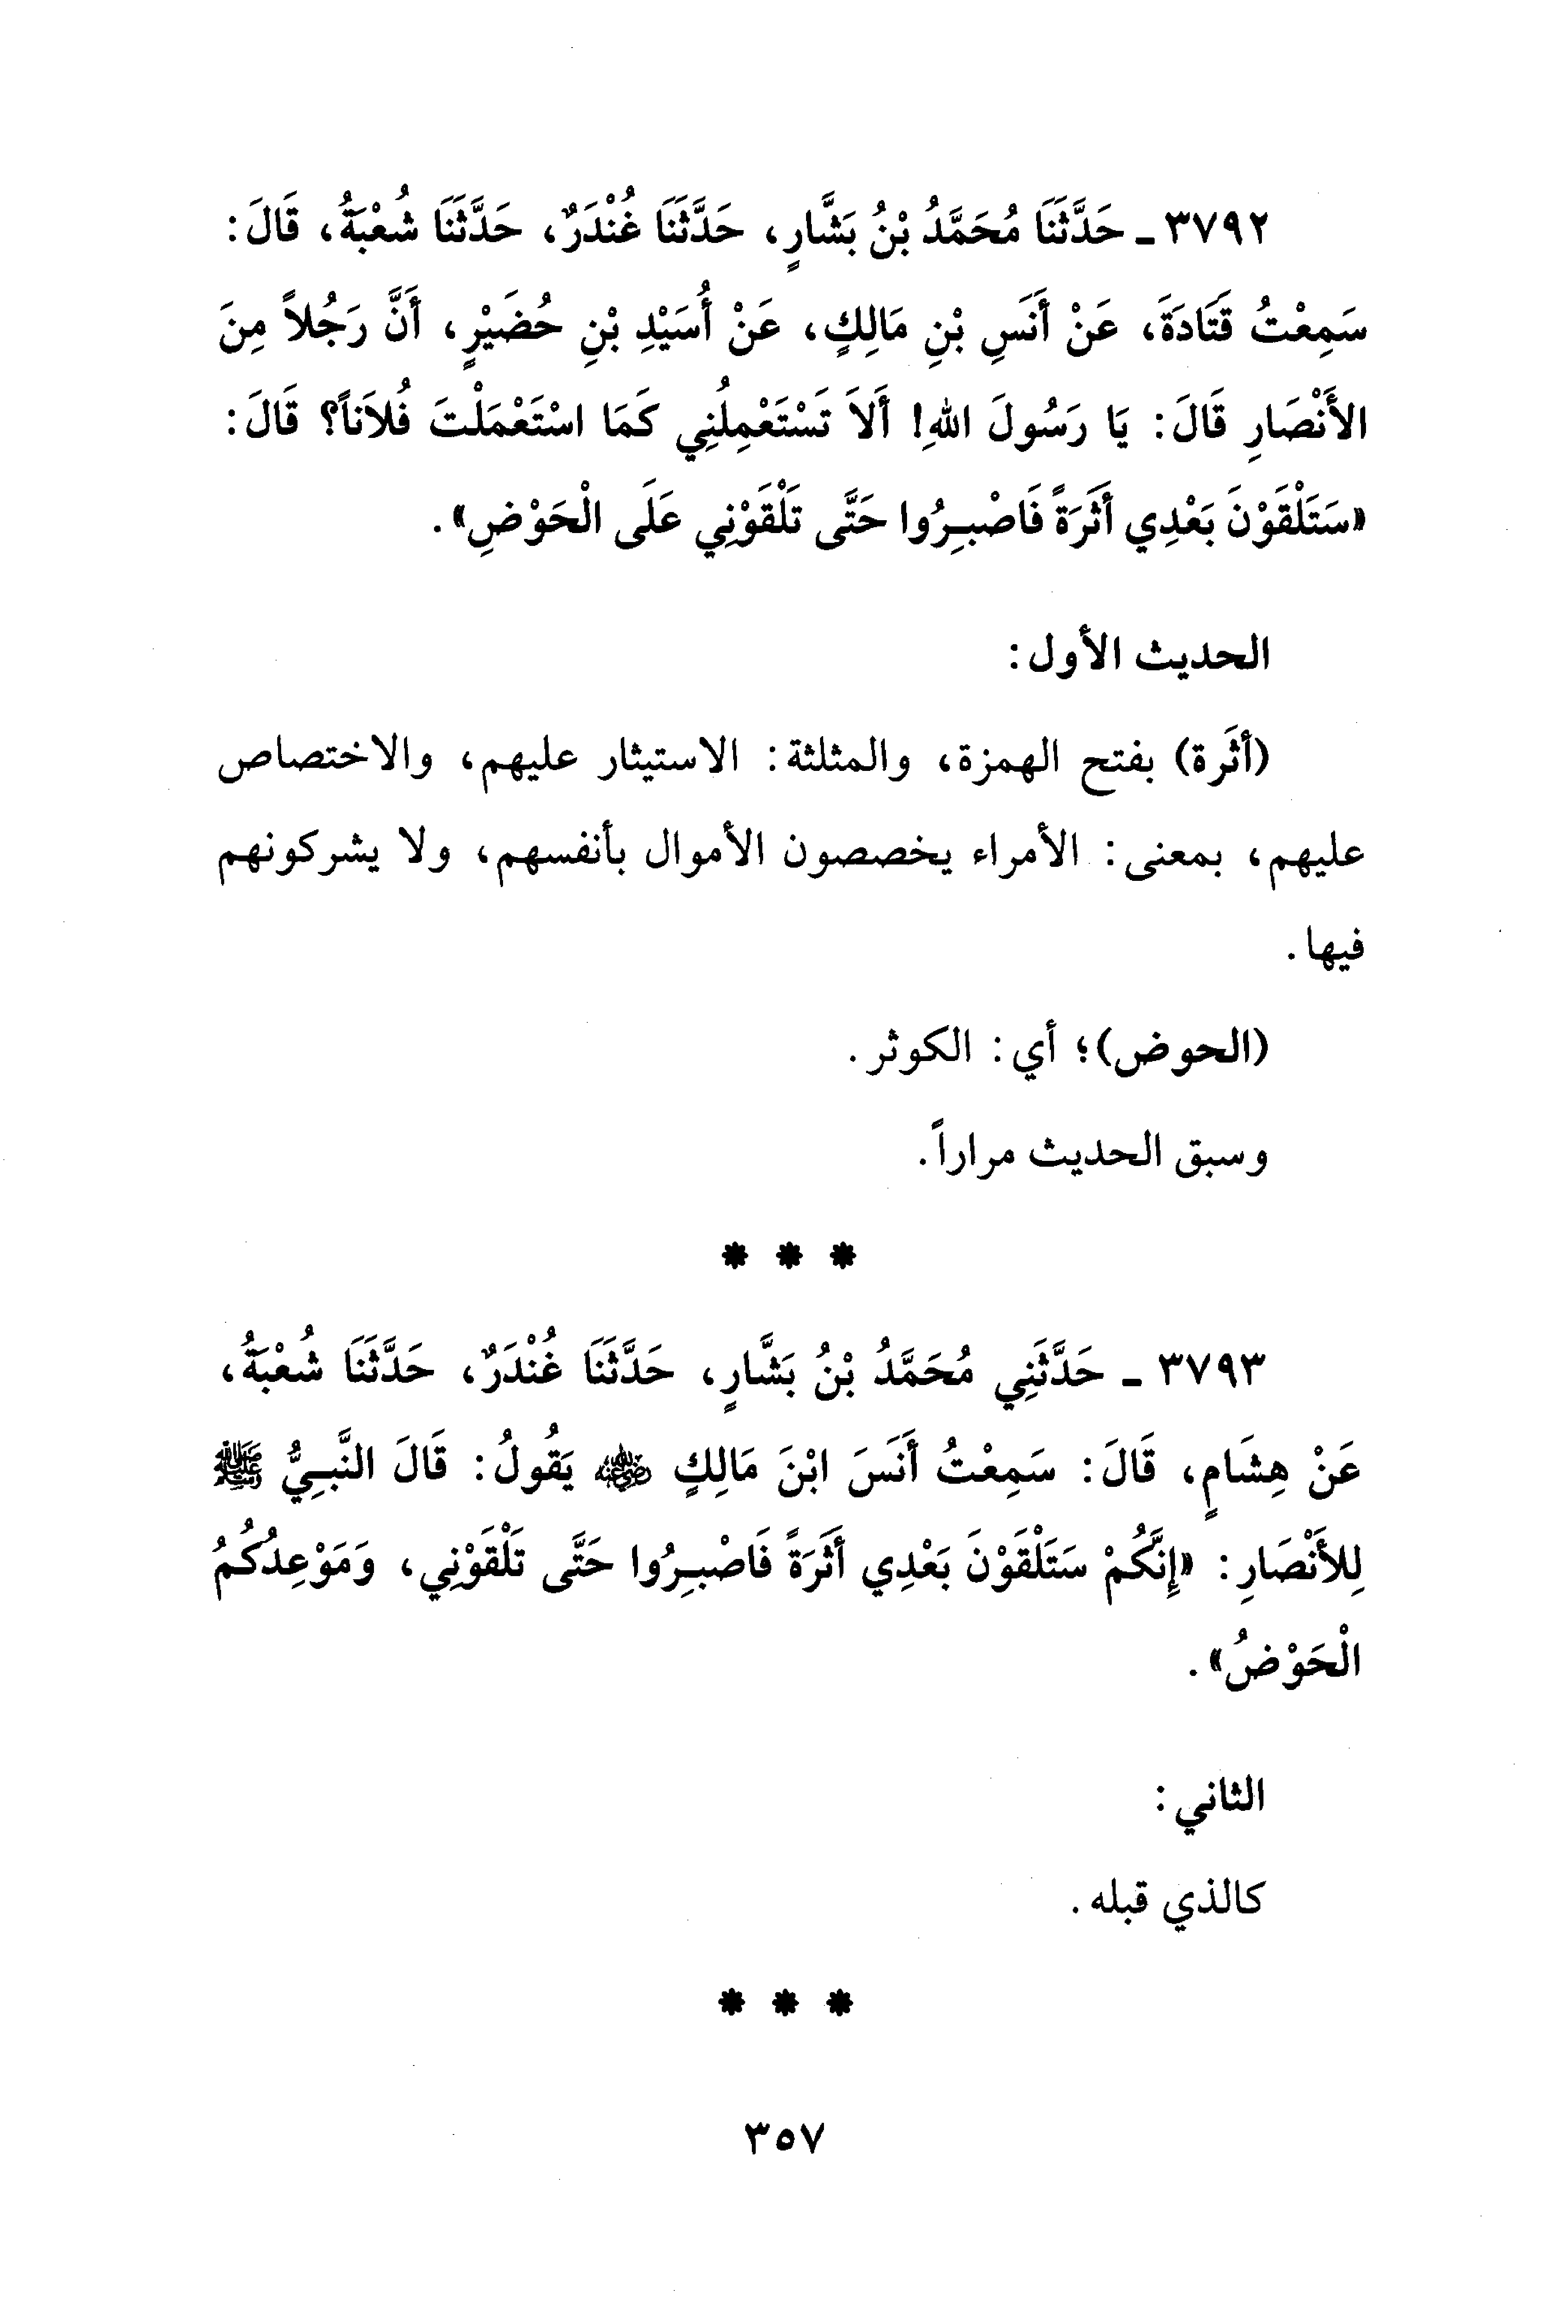 ٣٧٩٢ - حَدَّثَنَا مُحَمَّدُ بْنُ بَشَّارٍ، حَدَّثَنَا غُنْدَرٌ، حَدَّثَنَا شُعْبَةُ، قَالَ:
سَمِعْتُ قَتَادَةَ، عَنْ أَنَسِ بْنِ مَالِكٍ، عَنْ أُسَيْدِ بْنِ حُضَيْرٍ، أَنَّ رَجُلاً مِنَ
الأَنْصَارِ قَالَ: يَا رَسُولَ اللهِ! أَلاَ تَسْتَعْمِلُنِي كَمَا اسْتَعْمَلْتَ فُلاَناً؟ قَالَ:
«سَتَلْقَوْنَ بَعْدِي أَثَرَةً فَاصْبِرُوا حَتَّى تَلْقَوْنِي عَلَى الْحَوْضِ».
الحديث الأول:
(أثَرة) بفتح الهمزة، والمثلثة: الاستيثار عليهم، والاختصاص
عليهم، بمعنى: الأمراء يخصصون الأموال بأنفسهم، ولا يشركونهم
فيها.
(الحوض)؛ أي: الكوثر.
وسبق الحديث مراراً.
* * *
٣٧٩٣ - حَدَّثَنِي مُحَمَّدُ بْنُ بَشَّارٍ، حَدَّثَنَا غُنْدَرٌ، حَدَّثَنَا شُعْبَةُ،
عَنْ هِشَامٍ، قَالَ: سَمِعْتُ أَنَسَ ابْنَ مَالِكٍ رضي الله عنه يَقُولُ: قَالَ النَّبِيُّ ﷺ
لِلأَنْصَارِ: «إِنَّكُمْ سَتَلْقَوْنَ بَعْدِي أَثَرَةً فَاصْبِرُوا حَتَّى تَلْقَوْنِي، وَمَوْعِدُكُمُ
الْحَوْضُ».
الثاني:
كالذي قبله.
* * *
٣٥٧